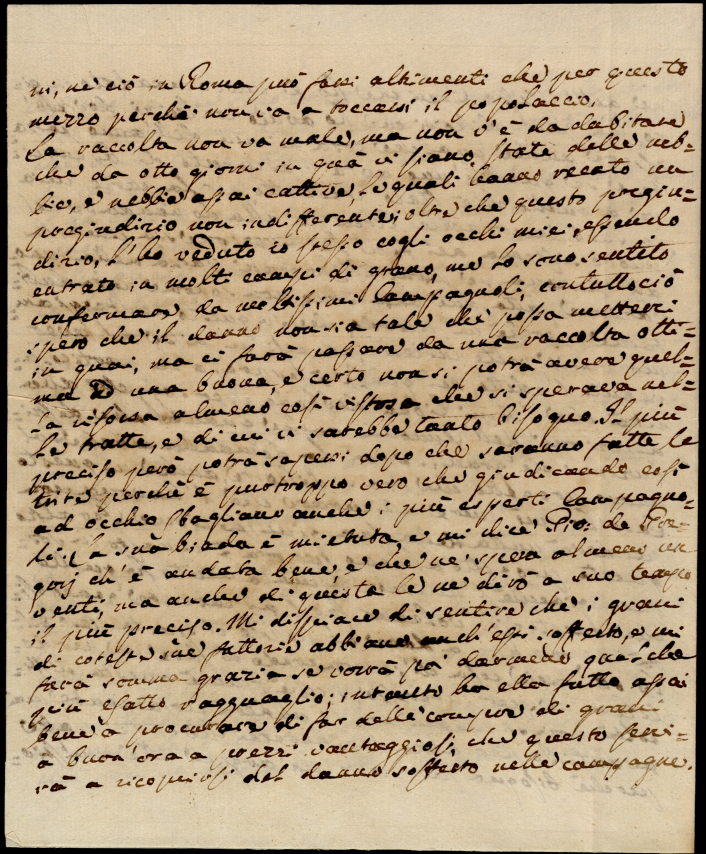 ni, ne ciò in Roma può farsi altrimenti che per questo
mezzo perchè non va a toccarsi il popolaccio.
La raccolta non va male, ma non v'è da dubitare
che da otto giorni in quà vi siano state delle neb=
bie, e nebbie assai cattive, le quali hanno recato un
pregiudizio non indifferente; oltre che questo pregiu=
dizio, l'ho veduto io stesso cogli occhi miei, essendo
entrato in molti campi di grano, me lo sono sentito
confermare da moltissimi Campagnoli; contuttociò
spero che il danno non sia tale che possa metterci
in guai, ma ci farà passare da una raccolta otti=
ma ad una buona, e certo non si potrà avere quel=
la risorsa almeno così vistosa che si sperava nel=
le tratte, e di cui vi sarebbe tanto bisogno. Il più
preciso però potrà sapersi dopo che saranno fatte le
trite perchè è purtroppo vero che giudicando così
ad occhio sbagliano anche i più esperti Campagno=
li. La sua biada è mietuta, e mi dice Gio: de
ch'è andata bene, e che ne spera almeno un
venti, ma anche di questa le ne dirò a suo tempo
il più preciso. Mi dispiace di sentire che i grani
di coteste sue fattorie abbiano anch'essi sofferto, e mi
farà somma grazia se vorrà poi darmene qualche
più esatto ragguaglio; intanto ha ella fatto assai
bene a procurare di far delle compre di grani
a buon'ora a prezzi vantaggiosi, che questo servi=
rà a ricoprirsi del danno sofferto nelle campagne.